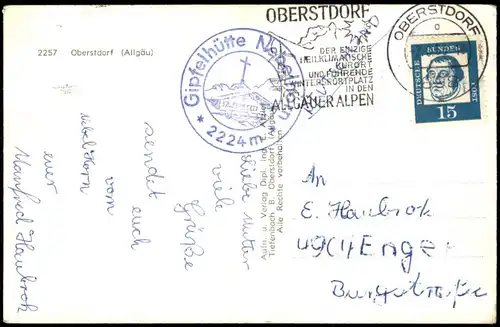 2257 Oberstdorf (Allgäu)
OBERSTDORF
DER EINZIGE
HEILKLIMATISCHE
KURORT
UND FÜHRENDE
WINTERSPORTPLATZ
IN DEN
ALLGÄUER ALPEN
OBERSTDORF
DEUTSCHE BUNDESPOST
15
Gipfelhütte Nebelhorn
* 2224 m *
Aufn. u. Verlag Dipl. Ing.
Tiefenbach B. Oberstdorf (Allgäu)
Alle Rechte vorbehalten
Liebe Mutter
viele
Grüße
sendet euch
vom
Nebelhorn
euer
Manfred Haubrok
An
E. Haubrok
4904 Enger
Burgstraße